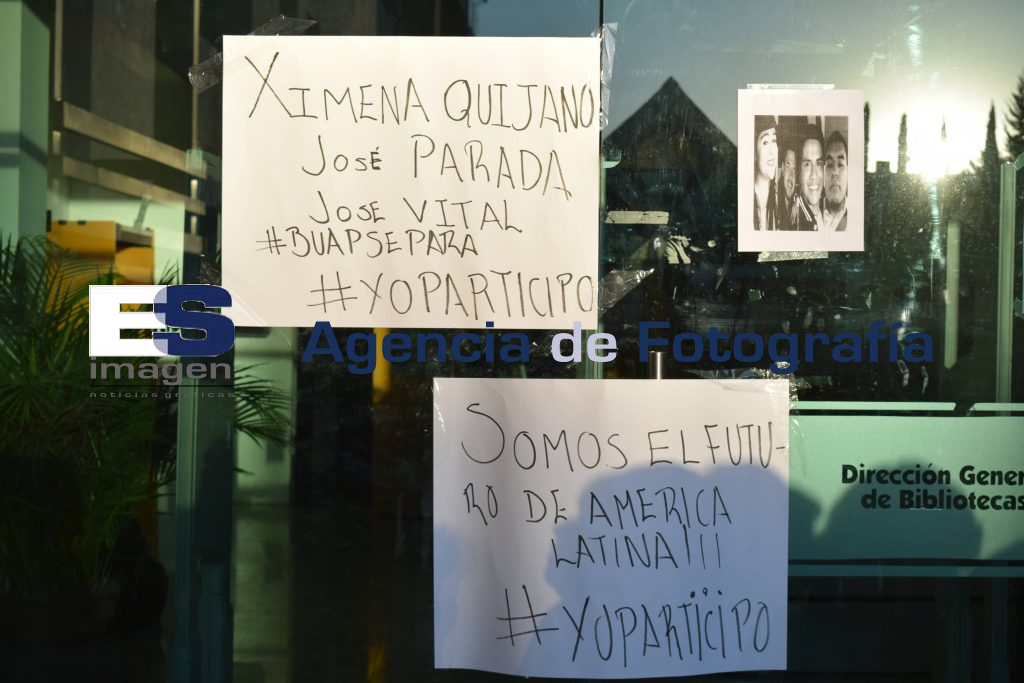 XIMENA QUIJANO
JOSÉ PARADA
JOSE VITAL
#BUAPSEPARA
#YOPARTICIPO
ES
imagen
noticias graficas
Agencia de Fotografía
SOMOS EL FUTU-
RO DE AMERICA
LATINA!!!
#YOPARTICIPO
Dirección Gener
de Bibliotecas